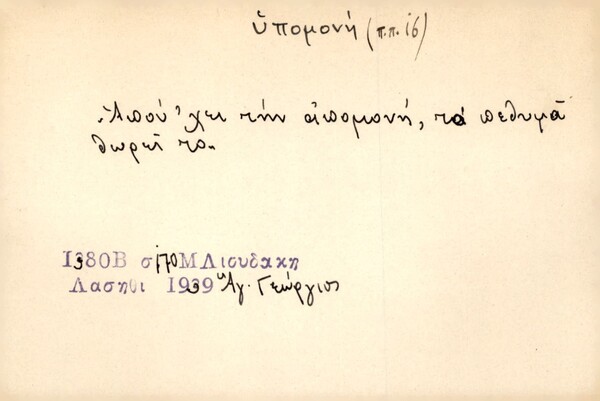 ὑπομονή (π.π. 16)
Ἀπού 'χει τήν ἀπομονή, τά πεθυμᾶ
θωρεῖ το.
1380Β σ 170 Μ Λιουδακη
Λασηθι 1939 Ἁγ. Γεώργιος